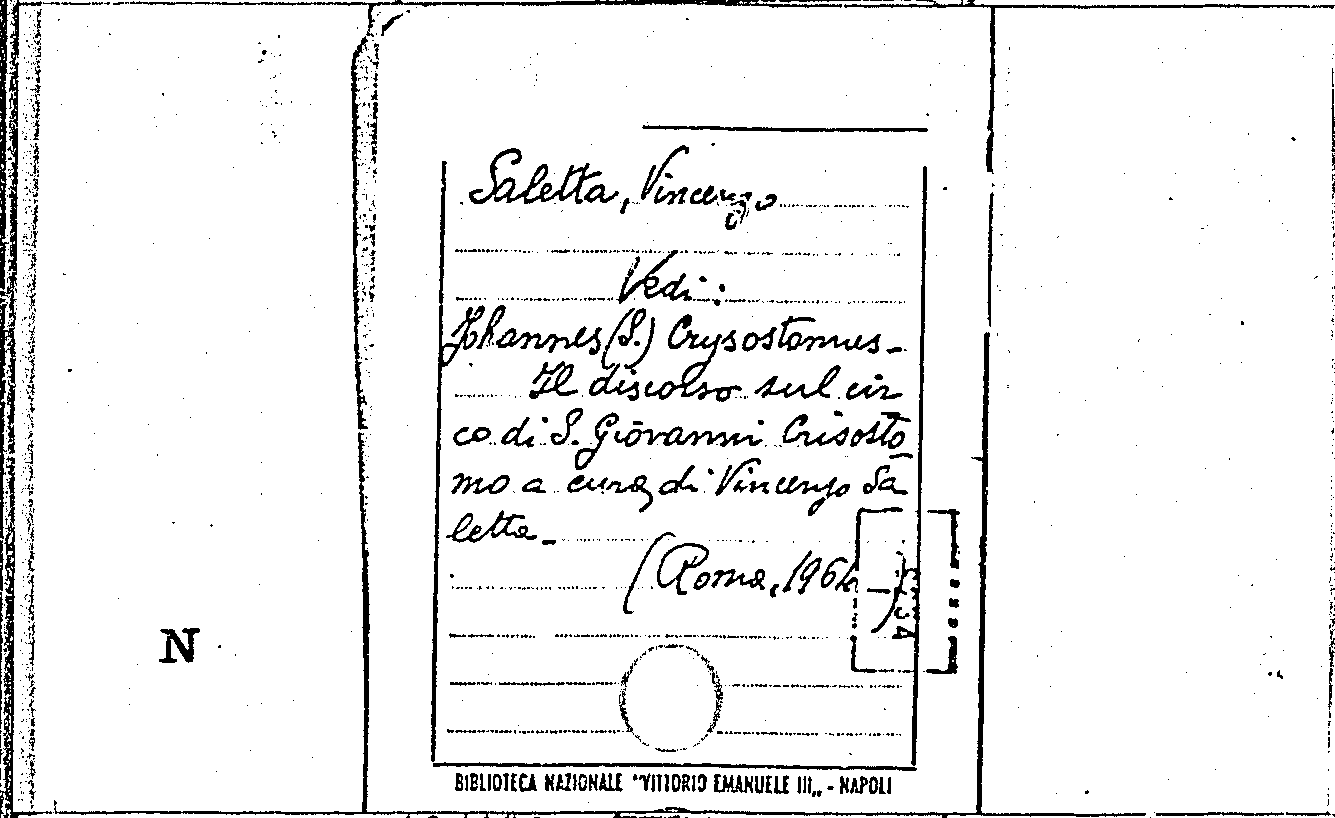 Saletta, Vincenzo
Vedi:
Johannes (S.) Crysostomus -
Il discorso sul cir
co di S. Giovanni Crisosto
mo a cura di Vincenzo Sa
letta. -
(Roma, 196
N
BIBLIOTECA NAZIONALE "VITTORIO EMANUELE III„ - NAPOLI